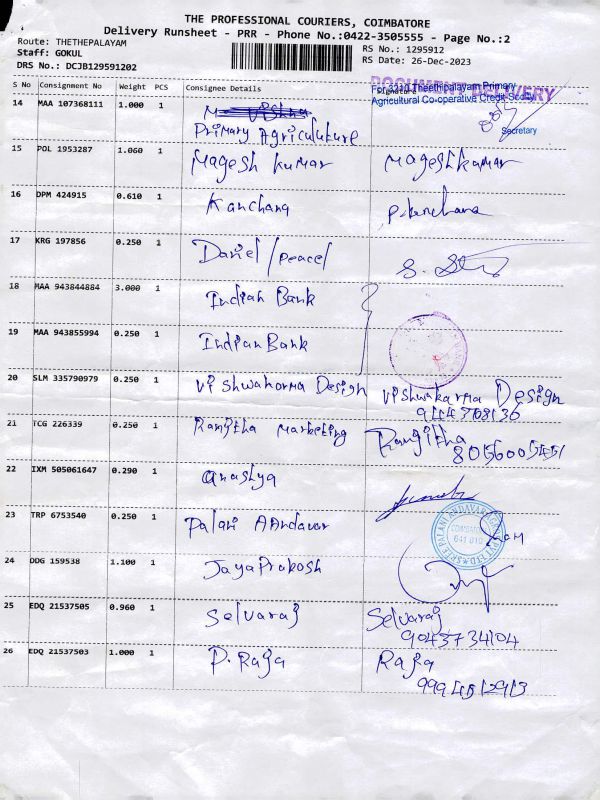 THE PROFESSIONAL COURIERS, COIMBATORE
Delivery Runsheet - PRR - Phone No.:0422-3505555 - Page No.:2
Route: THETHEPALAYAM
Staff: GOKUL
DRS No.: DCJB129591202
RS No.: 1295912
RS Date: 26-Dec-2023
S No Consignment No Weight PCS Consignee Details Signature
DOCUMENT DELIVERY
For 3210 Theethipalayam Primary
Agricultural Co-operative Credit Society
Secretary
14 MAA 107368111 1.000 1
Primary Agriculuture
15 POL 1953287 1.060 1 Magesh kumar Mageshkumar
16 DPM 424915 0.610 1 Kanchana P. kanchana
17 KRG 197856 0.250 1 Daniel / peace
18 MAA 943844884 3.000 1 Indian Bank
19 MAA 943855994 0.250 1 Indian Bank
20 SLM 335790979 0.250 1 Vishwakorma Design Vishwakarma Design
21 TCG 226339 0.250 1 Rangitha marketing Rangitha
22 IXM 505061647 0.290 1
23 TRP 6753540 0.250 1 Palani AAndavar
641 010
24 DDG 159538 1.100 1 JayaProkosh
25 EDQ 21537505 0.960 1 Selvaraj Selvaraj
9043734104
26 EDQ 21537503 1.000 1 P. Raja Raja